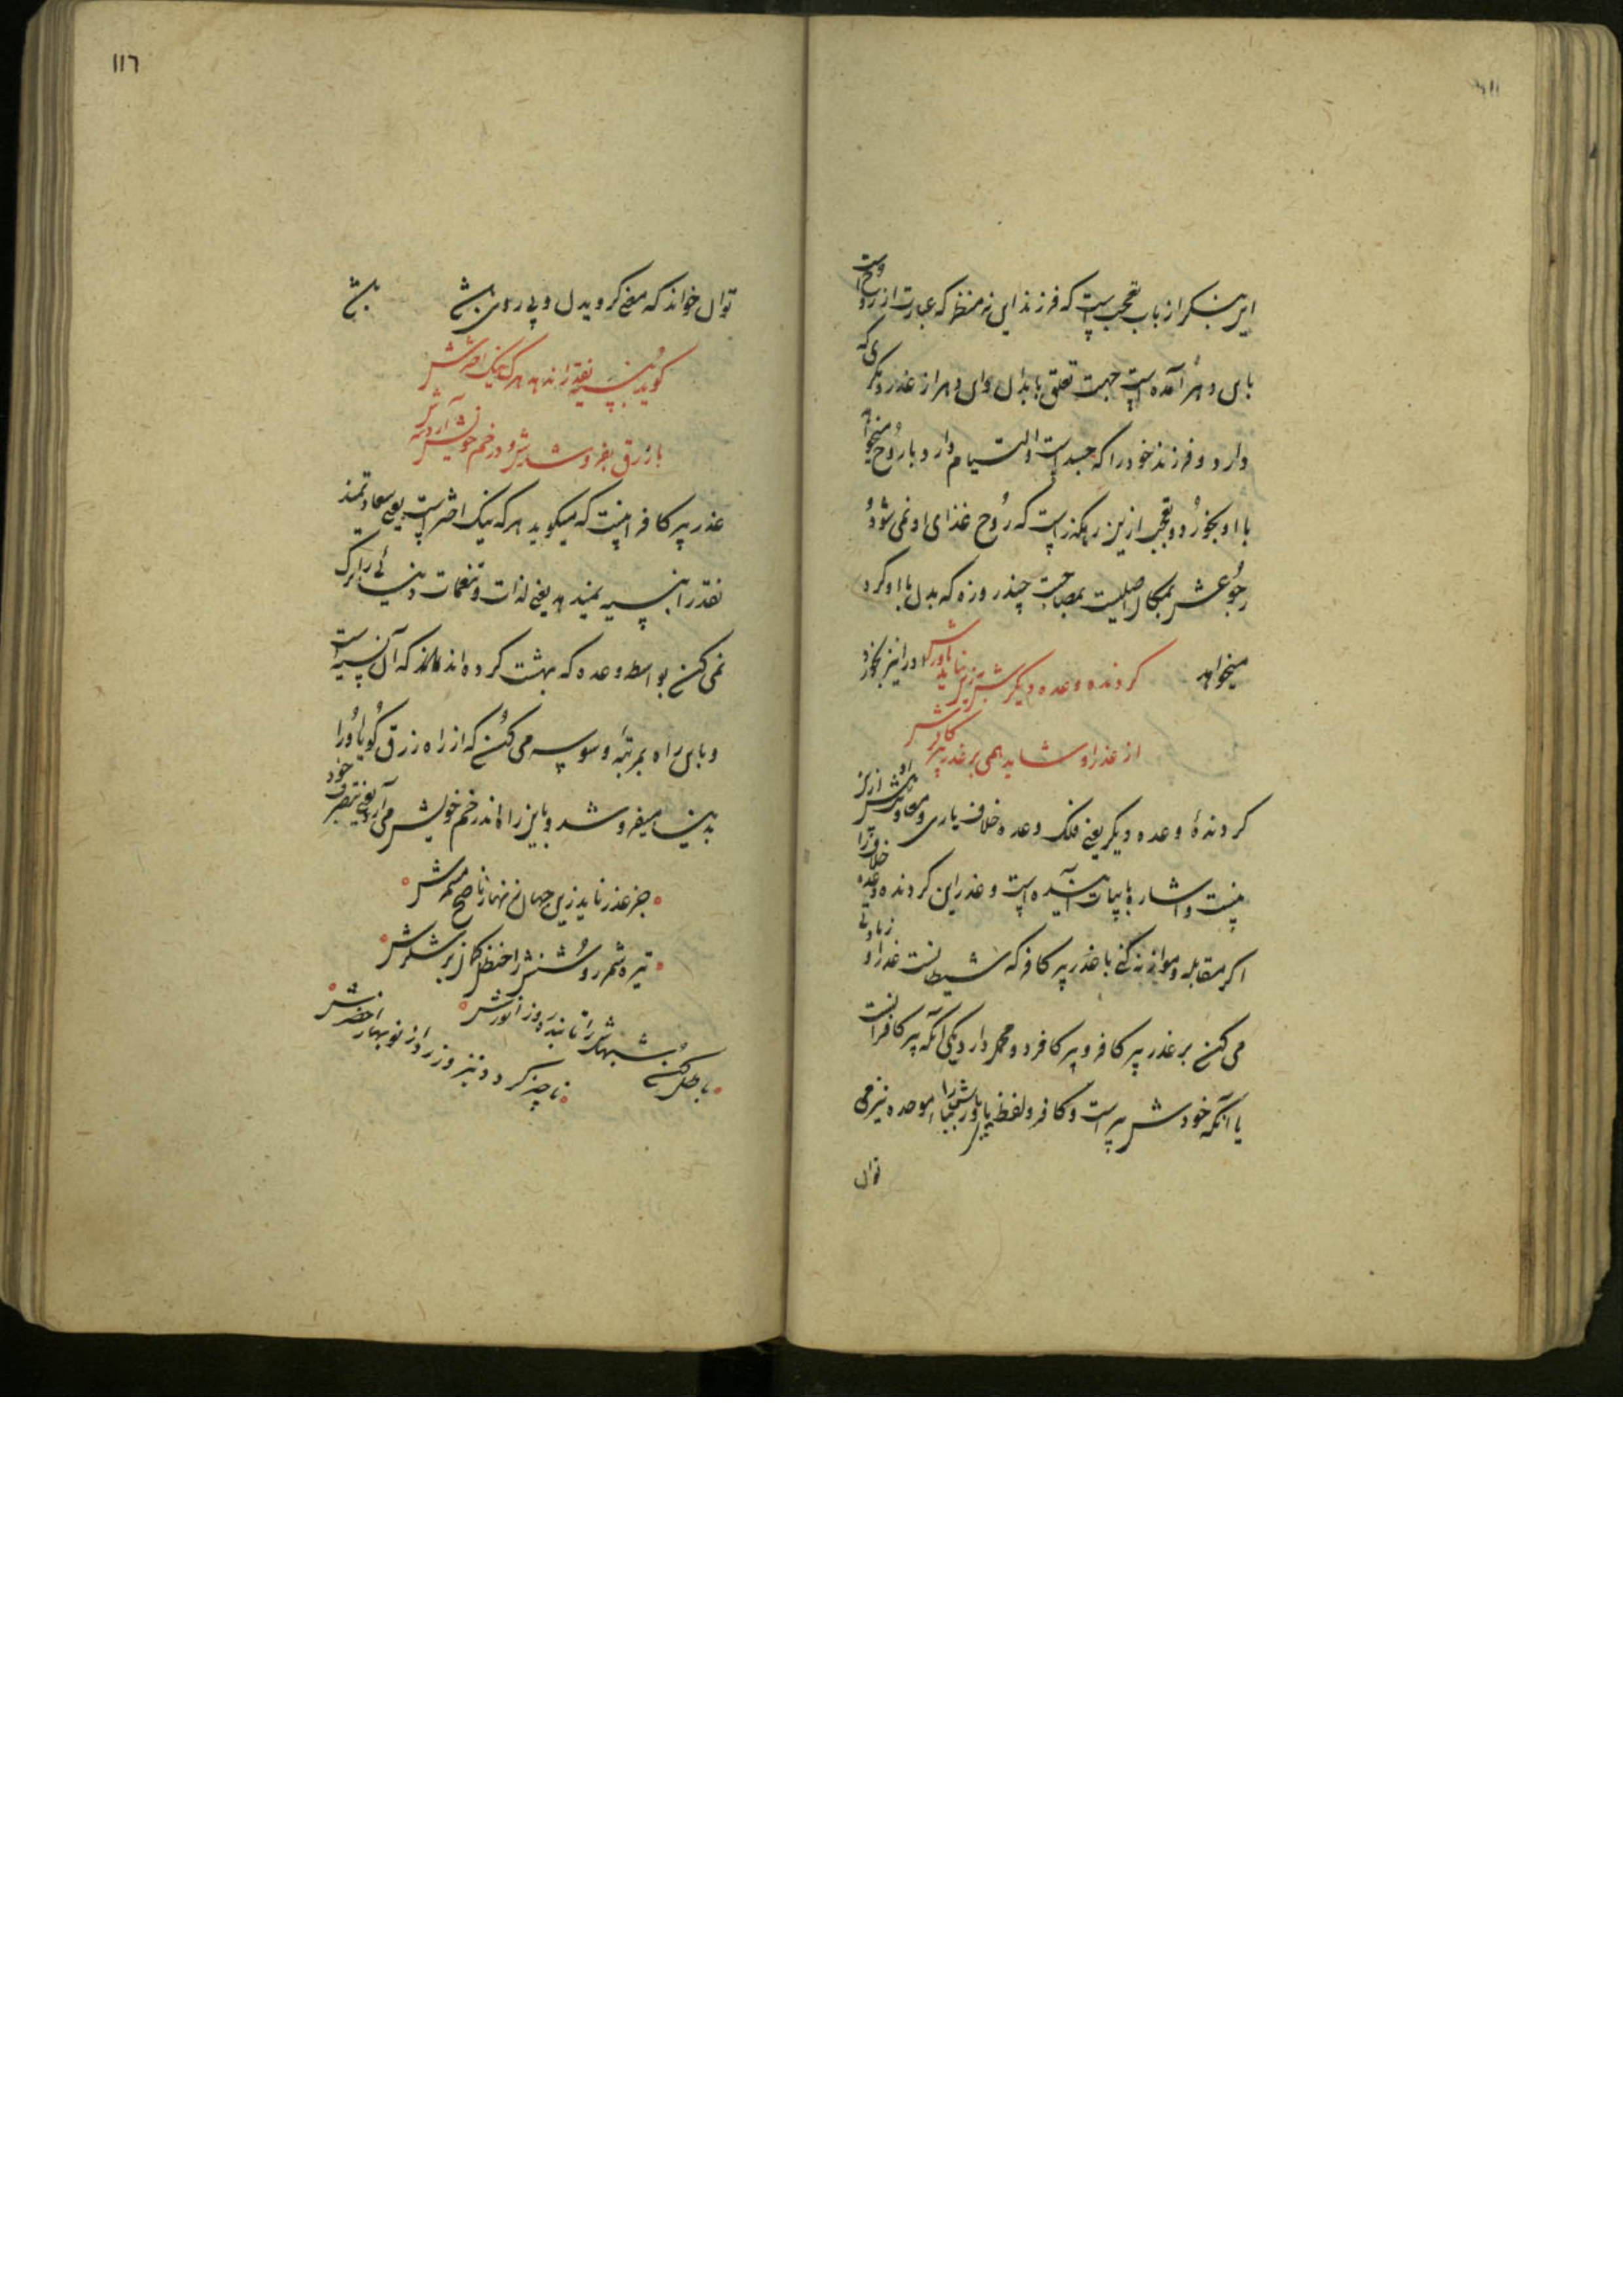 این بنگر از باب تعجب است که فرزند این نه منظر که عبارت از روح است
باین دهر آمده است جهت تعلق با بدان وای دهر از غدر دیگری که
دارد و فرزند خود را که جسد است والتیام دارد با روح میخواهد
با او بخورد و تعجب ازین رهگذر است که روح غذای او نمی شود و
رجوعش بمکان اصلیست بمصاحبت چند روزه که بدل با او کرد
میخواهد او را نیز بخورد
کردنده وعده دیگرش نیز بر نیاید باورش
از غدر او شاید همی بر غدر پیر کافرش
کردنده وعده دیگر یعنی فلک وعده خلاف یاری و معاونش از نیز
نیست و اشاره بابیات آینده است و غدر این کردنده وعده خلاف را
اگر مقابله و موازنه کنی با غدر پیر کافر که شیطانست غدر او زیادتی
می کند بر غدر پیر کافر و پیر کافر دو محمل دارد یکی آنکه پیر کافرانست
یا آنکه خودش پیر است و کافر و لفظ باورش را بباء موحده نیز می
توان
١١٦
توان خواند که معنی کرویدن و پی روی باشد
کوید بنسیه نقد را ندهد هر که نیک اخترش
با زرق بفروشد ترا و در خم خویش آردش
غدر پیر کافر اینست که میکوید هر که نیک اختر است یعنی سعادتمند
نقد را بنسیه نمیدهد یعنی لذات و تنعمات دنیائی را ترک
نمی کند بواسطه وعده که بهشت کرده اند که آن نسیه است
و باین راه بمرتبه وسوسه می کند که از راه زرق کویا او را
بدنیا میفروشد و باین راه اندر خم خویش می آرد یعنی بتصرف خود
جز غدر ناید زین جهان زنهار ناصح مشمرش
تیره شمر روشنش را حنظل کمان بر شکرش
باطل کند شبهاش را تابنده روز انورش
ناچیز کردد تیز و زرد از نوبهار اخضرش